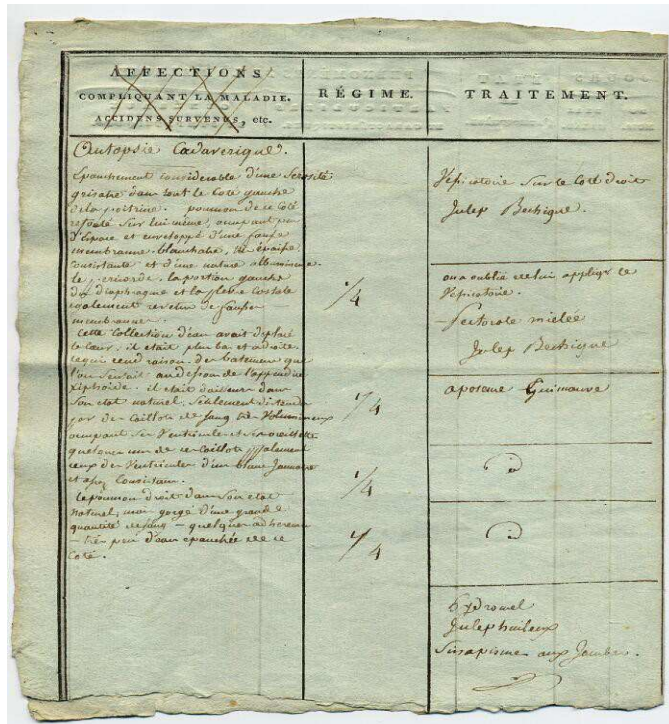 AFFECTIONS
COMPLIQUANT LA MALADIE.
ACCIDENS SURVENUS, etc.
RÉGIME.
TRAITEMENT.
Autopsie Cadaverique.
Epanchement considerable d'une serosité
grisatre dans tout le coté gauche
de la poitrine. poumon de ce coté
refoulé sur lui même, occupant peu
d'espace et enveloppé d'une fausse
membranne blanchatre, épaisse
consistante et d'une nature albumineuse
le pericarde, la portion gauche
du diaphragme et la plevre costale
egalement revetus de fausses
membrannes.
Cette collection d'eau avait deplacé
le cœur, il etait plus bas et a droite
ce qui rend raison des batemens que
l'on sentait au dessous de l'appendice
xiphoïde. il etait dailleurs dans
son etat naturel, seulement distendu
par des caillots de sang très volumineux
occupant ses ventricules et ses oreillettes
quelques uns de ces caillots
ceux des ventricules d'un blanc jaunatre
et assez consistans.
le poumon droit dans son etat
naturel, mais gorgé d'une grande
quantité de sang - quelques adherences
- très peu d'eau epanchée de ce
coté.
1/4
1/4
1/4
1/4
Vesicatoire sur le coté droit
Julep Bechique.
on a oublié de lui appliqr le
Vesicatoire.
- Pectorale miélée
Julep Bechique
aposeme Guimauve
Hydromel
Julep huileux
Sinapisme aux Jambes.